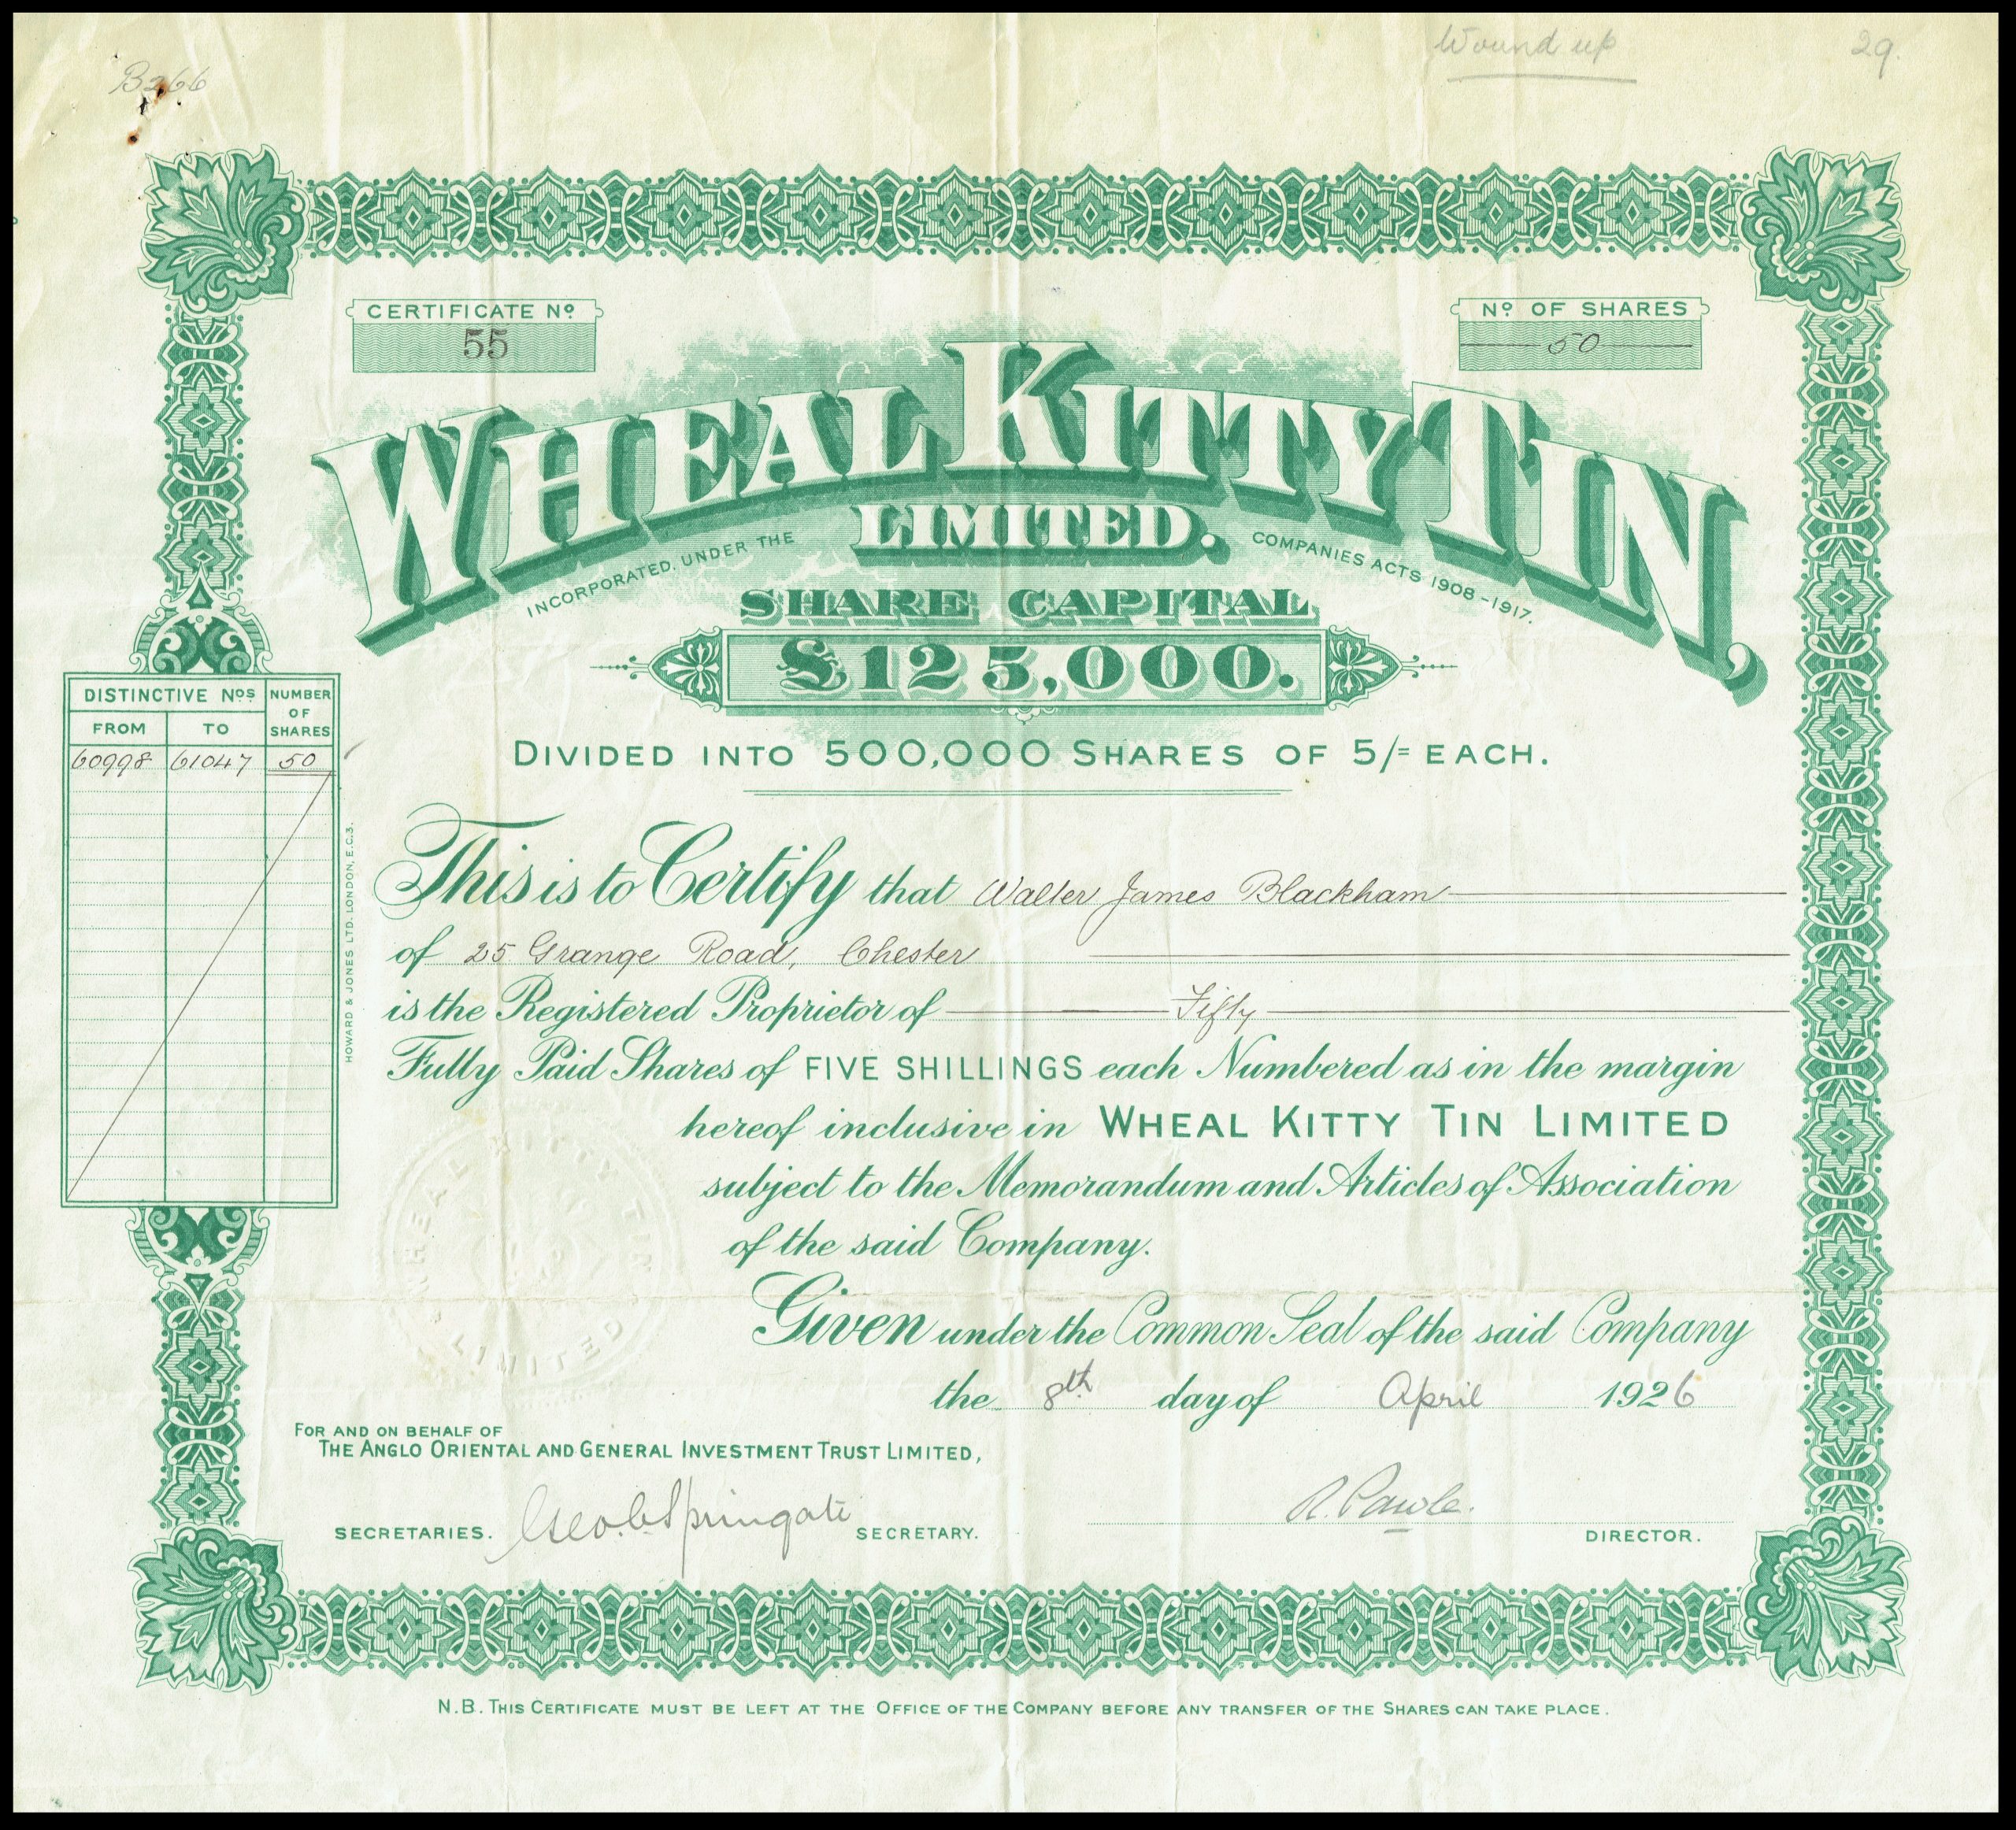 Wound up
29.
B266
CERTIFICATE Nº
55
Nº OF SHARES
50
WHEAL KITTY TIN,
LIMITED.
INCORPORATED. UNDER THE COMPANIES ACTS 1908-1917.
SHARE CAPITAL
£125,000.
DIVIDED INTO 500,000 SHARES OF 5/= EACH.
DISTINCTIVE NOS NUMBER OF SHARES
FROM TO
60998 61047 50
HOWARD & JONES LTD. LONDON, E.C.3.
This is to Certify that Walter James Blackham
of 25 Grange Road, Chester
is the Registered Proprietor of Fifty
Fully Paid Shares of FIVE SHILLINGS each Numbered as in the margin
hereof inclusive in WHEAL KITTY TIN LIMITED
subject to the Memorandum and Articles of Association
of the said Company.
WHEAL KITTY TIN
LIMITED
Given under the Common Seal of the said Company
the 8th day of April 1926
FOR AND ON BEHALF OF
THE ANGLO ORIENTAL AND GENERAL INVESTMENT TRUST LIMITED,
SECRETARIES. Geo. C. Springate SECRETARY.
R. Pawle.
DIRECTOR.
N.B. THIS CERTIFICATE MUST BE LEFT AT THE OFFICE OF THE COMPANY BEFORE ANY TRANSFER OF THE SHARES CAN TAKE PLACE.